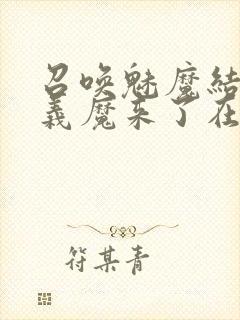 召唤魅魔结
义魔来了在
符某青